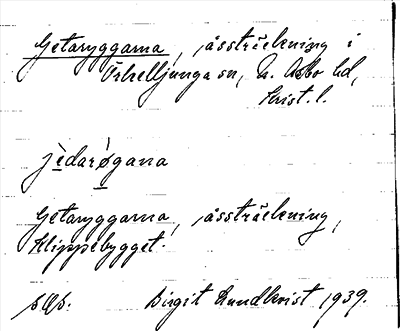 Getaryggarna, åssträckning i
Örkelljunga sn, N. Åsbo hd,
Krist. l.
jèdarøgana
Getaryggarna, åssträckning,
Klippebygget.
Birgit Lundkvist 1939.